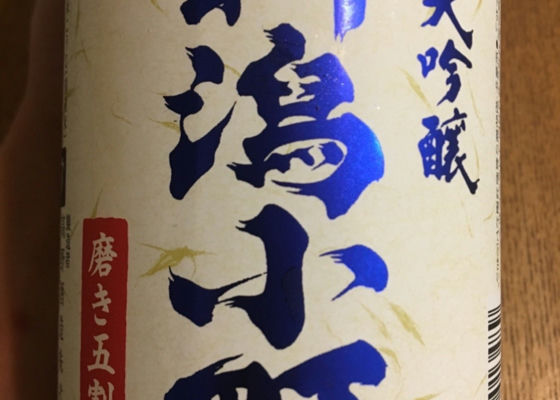 大吟醸
新潟小町
磨き五割